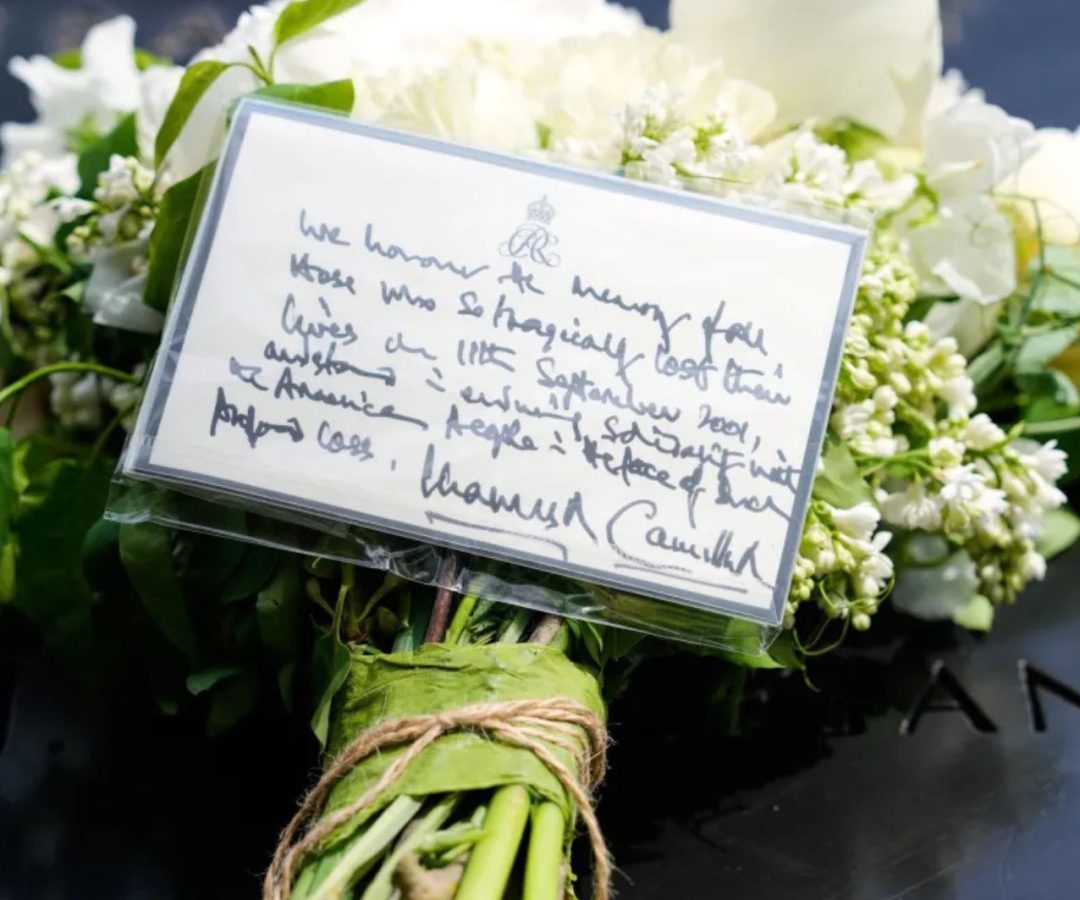 We honour the memory of all
those who so tragically lost their
lives on 11th September 2001,
and stand in enduring solidarity with
the American people in the face of such
profound loss.
Charles R Camilla R
A